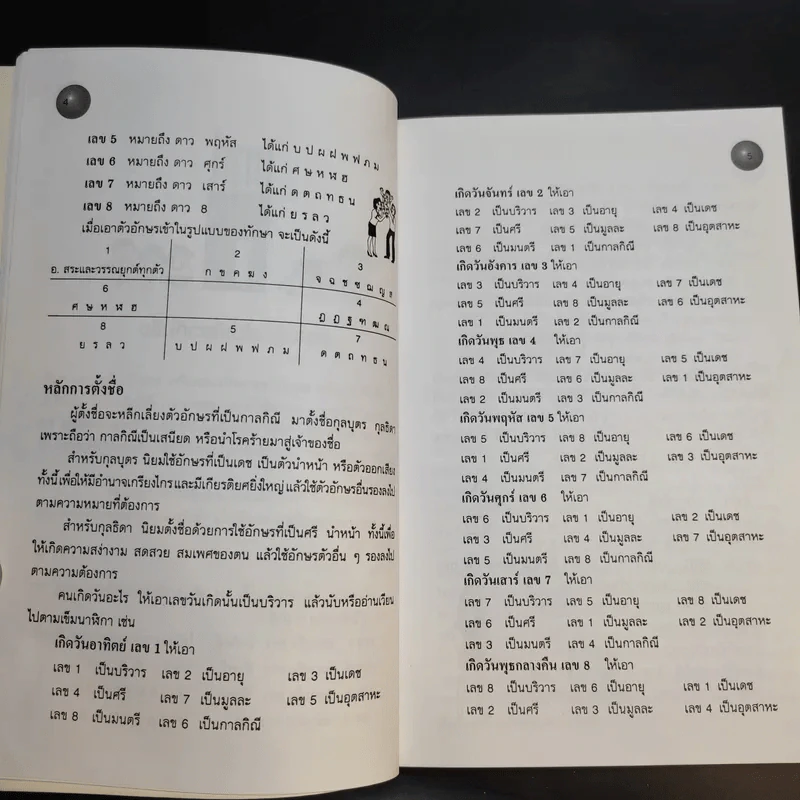 4
เลข 5 หมายถึง ดาว พฤหัส ได้แก่ บ ป ผ ฝ พ ฟ ภ ม
เลข 6 หมายถึง ดาว ศุกร์ ได้แก่ ศ ษ ห ฬ ฮ
เลข 7 หมายถึง ดาว เสาร์ ได้แก่ ด ต ถ ท ธ น
เลข 8 หมายถึง ดาว 8 ได้แก่ ย ร ล ว
เมื่อเอาตัวอักษรเข้าในรูปแบบของทักษา จะเป็นดังนี้
1 2 3
อ. สระและวรรณยุกต์ทุกตัว ก ข ค ฆ ง จ ฉ ช ซ ฌ ญ
6 4
ศ ษ ห ฬ ฮ ฎ ฏ ฐ ฑ ฒ ณ
8 5 7
ย ร ล ว บ ป ผ ฝ พ ฟ ภ ม ด ต ถ ท ธ น
หลักการตั้งชื่อ
ผู้ตั้งชื่อจะหลีกเลี่ยงตัวอักษรที่เป็นกาลกิณี มาตั้งชื่อกุลบุตร กุลธิดา
เพราะถือว่า กาลกิณีเป็นเสนียด หรือนำโรคร้ายมาสู่เจ้าของชื่อ
สำหรับกุลบุตร นิยมใช้อักษรที่เป็นเดช เป็นตัวนำหน้า หรือตัวออกเสียง
ทั้งนี้ เพื่อให้มีอำนาจเกรียงไกร และมีเกียรติยศยิ่งใหญ่ แล้วใช้ตัวอักษรอื่นรองลงไป
ตามความหมายที่ต้องการ
สำหรับกุลธิดา นิยมตั้งชื่อด้วยการใช้อักษรที่เป็นศรี นำหน้า ทั้งนี้เพื่อ
ให้เกิดความสง่างาม สดสวย สมเพศของตน แล้วใช้อักษรตัวอื่น ๆ รองลงไป
ตามความต้องการ
คนเกิดวันอะไร ให้เอาเลขวันเกิดนั้นเป็นบริวาร แล้วนับหรืออ่านเวียน
ไปตามเข็มนาฬิกา เช่น
เกิดวันอาทิตย์ เลข 1 ให้เอา
เลข 1 เป็นบริวาร เลข 2 เป็นอายุ เลข 3 เป็นเดช
เลข 4 เป็นศรี เลข 7 เป็นมูลละ เลข 5 เป็นอุตสาหะ
เลข 8 เป็นมนตรี เลข 6 เป็นกาลกิณี
5
เกิดวันจันทร์ เลข 2 ให้เอา
เลข 2 เป็นบริวาร เลข 3 เป็นอายุ เลข 4 เป็นเดช
เลข 7 เป็นศรี เลข 5 เป็นมูลละ เลข 8 เป็นอุตสาหะ
เลข 6 เป็นมนตรี เลข 1 เป็นกาลกิณี
เกิดวันอังคาร เลข 3 ให้เอา
เลข 3 เป็นบริวาร เลข 4 เป็นอายุ เลข 7 เป็นเดช
เลข 5 เป็นศรี เลข 8 เป็นมูลละ เลข 6 เป็นอุตสาหะ
เลข 1 เป็นมนตรี เลข 2 เป็นกาลกิณี
เกิดวันพุธ เลข 4 ให้เอา
เลข 4 เป็นบริวาร เลข 7 เป็นอายุ เลข 5 เป็นเดช
เลข 8 เป็นศรี เลข 6 เป็นมูลละ เลข 1 เป็นอุตสาหะ
เลข 2 เป็นมนตรี เลข 3 เป็นกาลกิณี
เกิดวันพฤหัส เลข 5 ให้เอา
เลข 5 เป็นบริวาร เลข 8 เป็นอายุ เลข 6 เป็นเดช
เลข 1 เป็นศรี เลข 2 เป็นมูลละ เลข 3 เป็นอุตสาหะ
เลข 4 เป็นมนตรี เลข 7 เป็นกาลกิณี
เกิดวันศุกร์ เลข 6 ให้เอา
เลข 6 เป็นบริวาร เลข 1 เป็นอายุ เลข 2 เป็นเดช
เลข 3 เป็นศรี เลข 4 เป็นมูลละ เลข 7 เป็นอุตสาหะ
เลข 5 เป็นมนตรี เลข 8 เป็นกาลกิณี
เกิดวันเสาร์ เลข 7 ให้เอา
เลข 7 เป็นบริวาร เลข 5 เป็นอายุ เลข 8 เป็นเดช
เลข 6 เป็นศรี เลข 1 เป็นมูลละ เลข 2 เป็นอุตสาหะ
เลข 3 เป็นมนตรี เลข 4 เป็นกาลกิณี
เกิดวันพุธกลางคืน เลข 8 ให้เอา
เลข 8 เป็นบริวาร เลข 6 เป็นอายุ เลข 1 เป็นเดช
เลข 2 เป็นศรี เลข 3 เป็นมูลละ เลข 4 เป็นอุตสาหะ